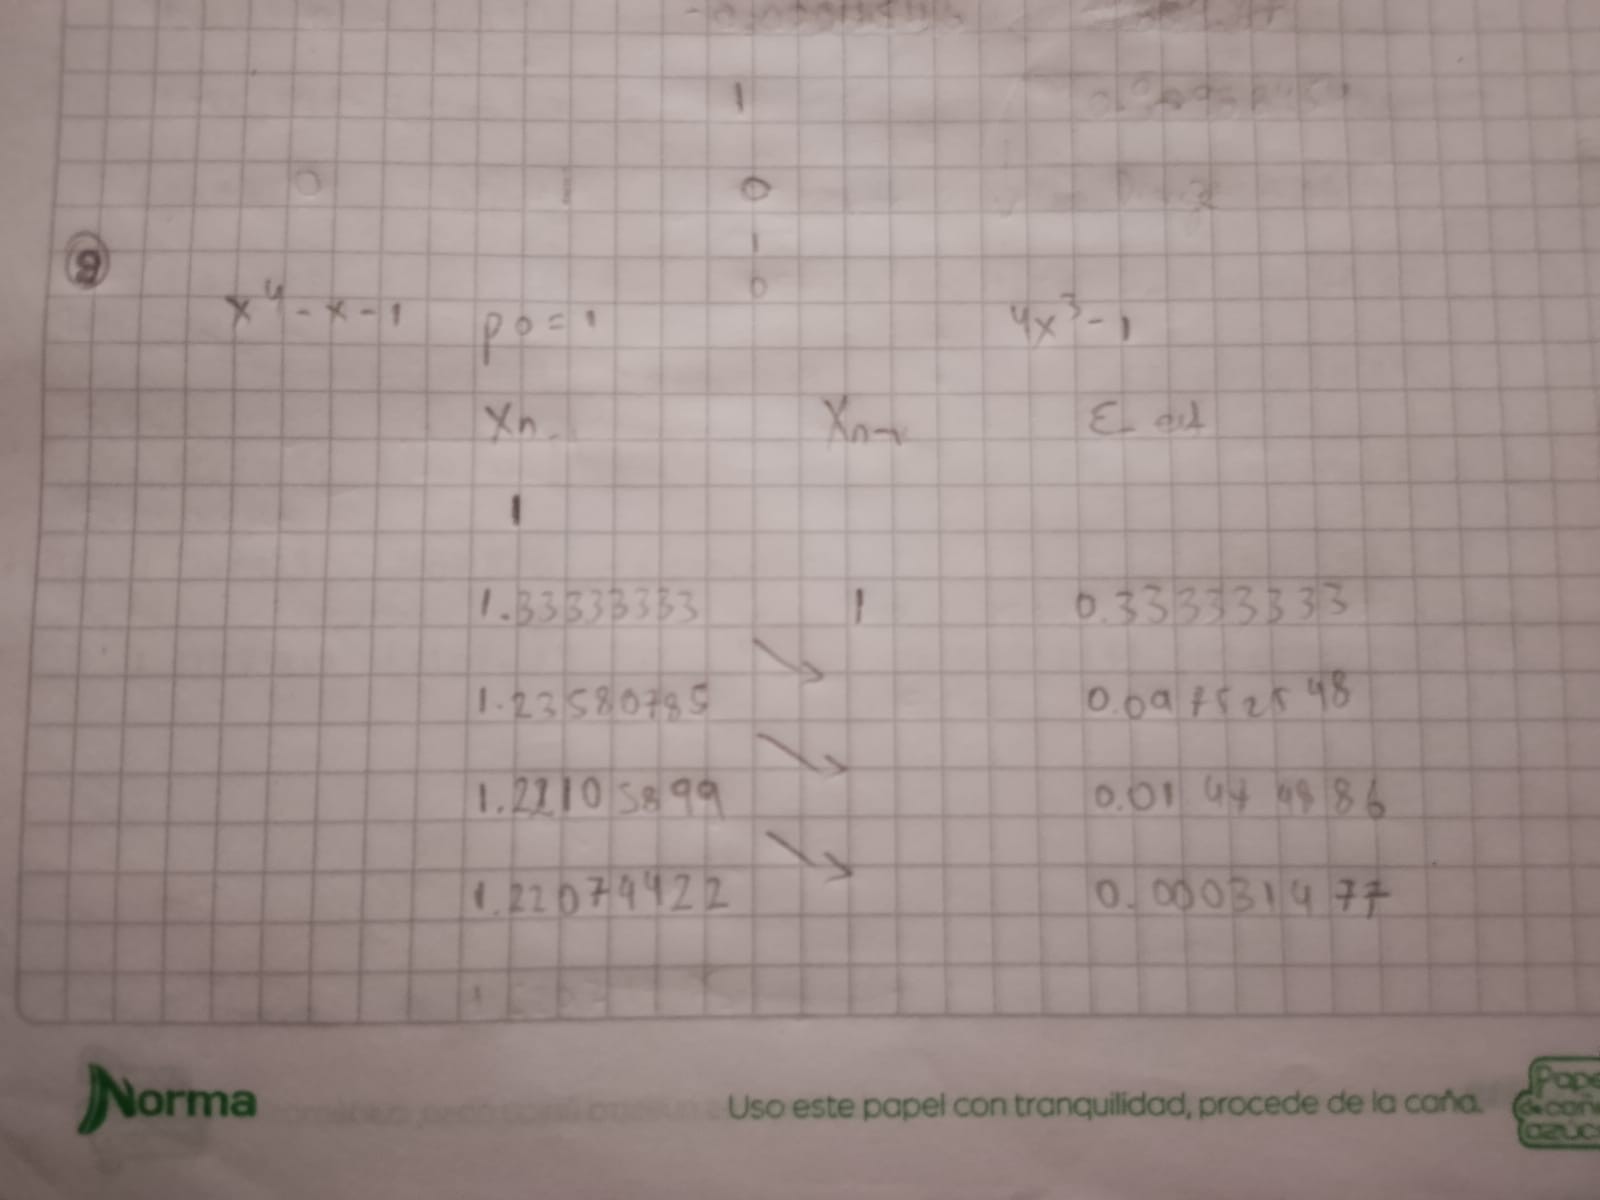 1
0
1
0
9
x^4 - x - 1 po = 1 4x^3 - 1
Xn Xn-1 E
1
1.33333333 1 0.33333333
1.23580785 0.09752548
1.22105899 0.01474886
1.22074422 0.00031477
Norma
Uso este papel con tranquilidad, procede de la caña.